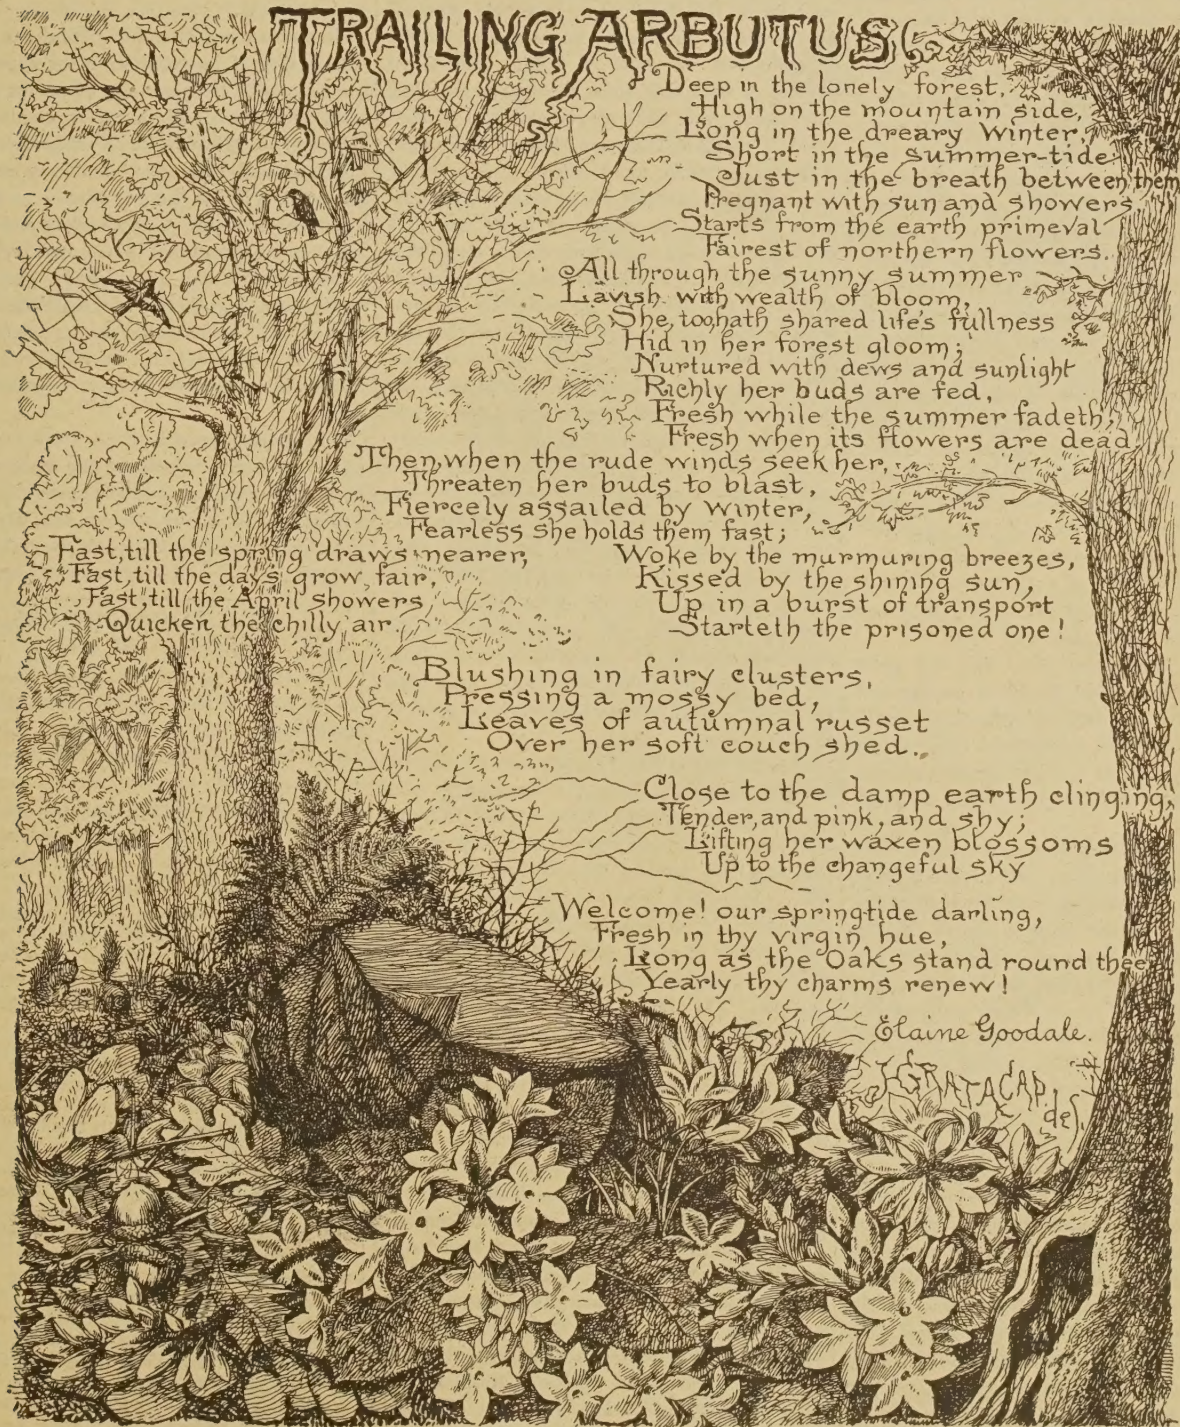 TRAILING ARBUTUS
Deep in the lonely forest,
High on the mountain side,
Long in the dreary Winter,
Short in the summer-tide
Just in the breath between them
Pregnant with sun and showers
Starts from the earth primeval
Fairest of northern flowers.
All through the sunny summer
Lavish with wealth of bloom,
She, too, hath shared life's fullness
Hid in her forest gloom;
Nurtured with dews and sunlight
Richly her buds are fed,
Fresh while the summer fadeth,
Fresh when its flowers are dead.
Then, when the rude winds seek her,
Threaten her buds to blast,
Fiercely assailed by Winter,
Fearless she holds them fast;
Fast, till the spring draws nearer,
Fast, till the days grow fair,
Fast, till the April showers
Quicken the chilly air
Woke by the murmuring breezes,
Kissed by the shining sun,
Up in a burst of transport
Starteth the prisoned one!
Blushing in fairy clusters,
Pressing a mossy bed,
Leaves of autumnal russet
Over her soft couch shed.
Close to the damp earth clinging,
Tender, and pink, and shy;
Lifting her waxen blossoms
Up to the changeful sky
Welcome! our springtide darling,
Fresh in thy virgin hue,
Long as the Oaks stand round thee
Yearly thy charms renew!
Elaine Goodale.
J. GRATACAP.
del.